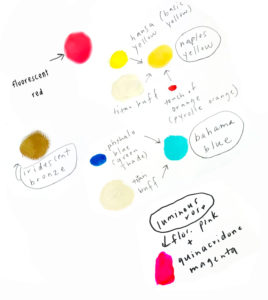 fluorescent
red
hansa (basic
yellow yellow)
naples
yellow
titan buff
touch of
orange
(pyrrole orange)
iridescent
bronze
phthalo
blue
(green
shade)
bahama
blue
titan
buff
luminous
rose
fluor. pink
+
quinacridone
magenta